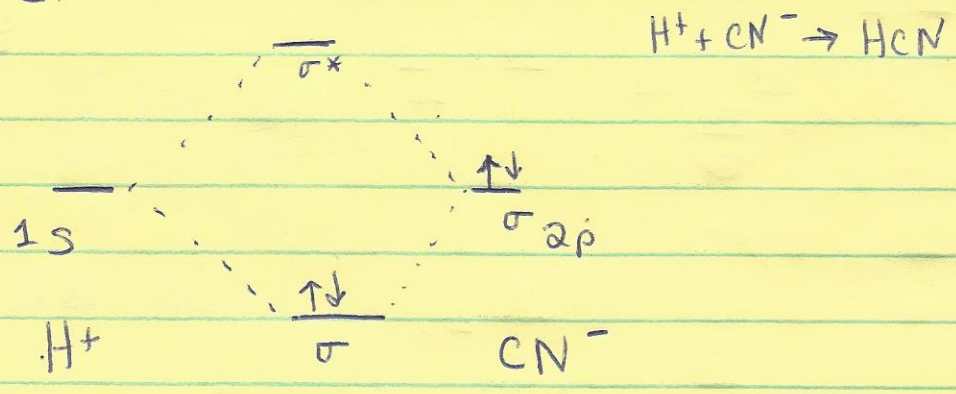 H⁺ + CN⁻ → HCN
σ*
↑↓
1S
σ 2p
↑↓
H⁺
σ
CN⁻